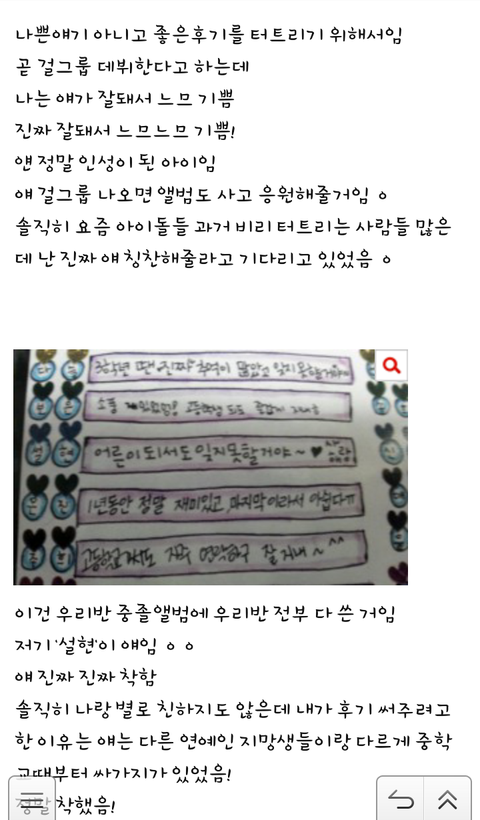 나쁜얘기 아니고 좋은후기를 터트리기 위해서임
곧 걸그룹 데뷔한다고 하는데
나는 얘가 잘돼서 느므 기쁨
진짜 잘돼서 느므느므 기쁨!
얜 정말 인성이 된 아이임
얘 걸그룹 나오면 앨범도 사고 응원해줄거임 ㅇ
솔직히 요즘 아이돌들 과거 비리 터트리는 사람들 많은
데 난 진짜 얘 칭찬해줄라고 기다리고 있었음 ㅇ
3학년 땐 진짜 추억이 많았고 잊지못할거야
어른이 되서도 잊지못할거야~ ♥ 사랑
1년동안 정말 재미있고 마지막이라서 아쉽다ㅠ
고등학교가서도 자주 연락하구 잘지내~^^
이건 우리반 중졸앨범에 우리반 전부 다 쓴 거임
저기 '설현'이 얘임 ㅇㅇ
얘 진짜 진짜 착함
솔직히 나랑 별로 친하지도 않은데 내가 후기 써주려고
한 이유는 얘는 다른 연예인 지망생들이랑 다르게 중학
교때부터 싸가지가 있었음!
정말 착했음!